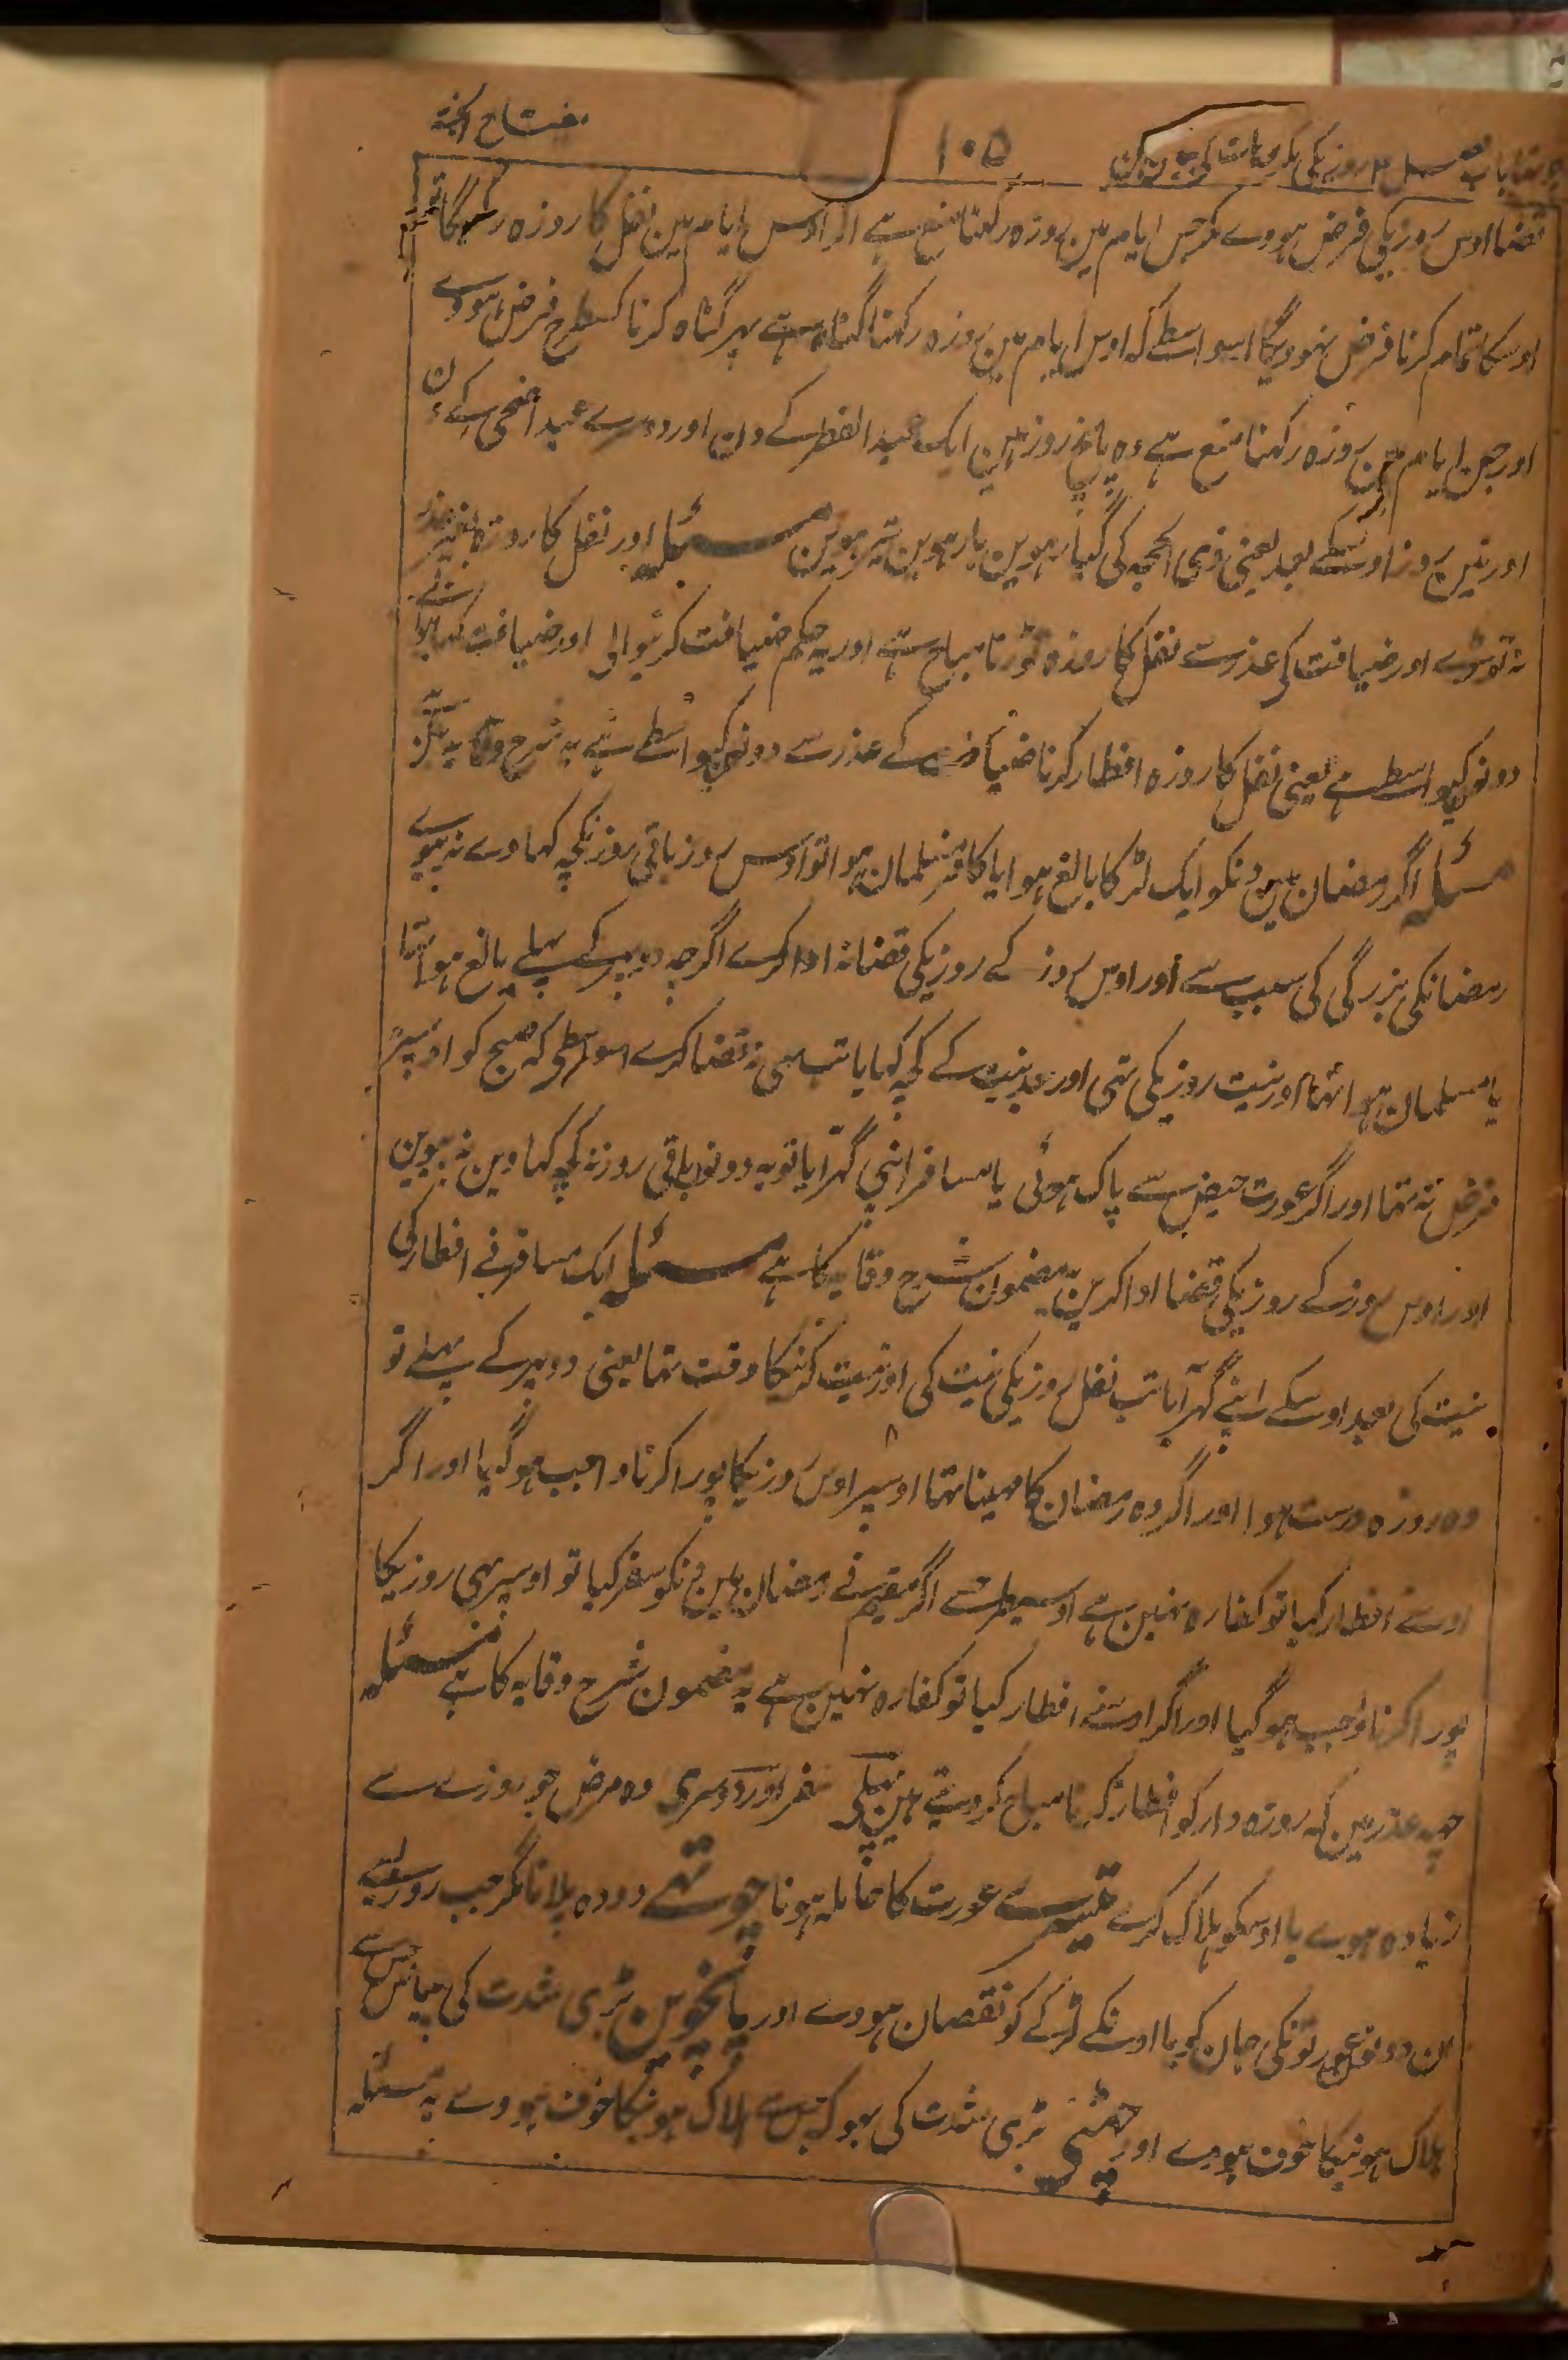 مفتاح الجنۃ
۱۰۵
قضا اوس روزیکی فرض ہووے مگر جس ایام مین روزہ رکھنا منع ہے اگر اوس ایام مین نفل کا روزہ رکھیگا تو
اوسکا تمام کرنا فرض نہوویگا اسواسطے کہ اوس ایام مین روزہ رکھنا گناہ ہے پہر گناہ کرنا کسطرح فرض ہووے
اور جن ایام مین روزہ رکھنا منع ہے وہ پانچ روز ہین ایک عید الفطر کے دن اور دوسرے عید اضحی کے دن
اور تین روز اوسکے بعد یعنی ذی الحجہ کی گیارہوین بارہوین تیرہوین مسئلہ اور نفل کا روزہ بغیر عذر
نہ توڑے اور ضیافت کی عذر سے نفل کا روزہ توڑنا مباح ہے اور یہ حکم ضیافت کرنیوالی اور ضیافت کہانیوالے
دونوکیواسطے ہے یعنی نفل کا روزہ افطار کرنا ضیافت کے عذر سے دونوکیواسطے ہے یہ شرح وقایہ مین ہے
مسئلہ اگر رمضان مین دنکو ایک لڑکا بالغ ہوا یا کافر مسلمان ہوا تو اوس روز باقی روز کچہ کہاوے نہ پیوے
رمضانکی بزرگی کی سبب سے اور اوس روز کے روزیکی قضا نہ ادا کرے اگرچہ دوپہر کے پہلے بالغ ہوا تہا
یا مسلمان ہوا تہا اور نیت روزیکی تہی اور بعد نیت کے کچہ کہایا تب بہی نہ قضا کرے اسواسطے کہ صبح کو اوسپر
فرض نہ تہا اور اگر عورت حیض سے پاک ہوئی یا مسافر اپنی گہر آیا تو یہ دونو باقی روز نہ کچہ کہاوین نہ پیوین
اور اوس روز کے روزیکی قضا ادا کرین یہ مضمون شرح وقایہ کا ہے مسئلہ ایک مسافر نے افطار کی
نیت کی بعد اوسکے اپنے گہر آیا تب نفل روزیکی نیت کی اور نیت کرنیکا وقت تہا یعنی دوپہر کے پہلے تو
وہ روزہ درست ہوا اور اگر وہ رمضان کا مہینا تہا اوسپر اوس روزیکا پورا کرنا واجب ہوگیا اور اگر
اوسنے افطار کیا تو کفارہ نہین ہے اوسیطرحسے اگر مقیم نے رمضان مین دنکو سفر کیا تو اوسپر بہی روزیکا
پورا کرنا واجب ہوگیا اور اگر اوسنے افطار کیا تو کفارہ نہین ہے یہ مضمون شرح وقایہ کا ہے مسئلہ
چہہ عذر ہین کہ روزہ دار کو افطار کرنا مباح کر دیتے ہین پہلی سفر اور دوسری وہ مرض جو روزے سے
زیادہ ہووے یا اوسکو ہلاک کرے تیسرے عورت کا حاملہ ہونا چوتھے دودہ پلانا مگر جب روزیسے
ان دونو عورتونکی جان کو یا اونکے لڑکے کو نقصان ہووے اور پانچوین بڑی شدت کی پیاس جسسے
ہلاک ہونیکا خوف ہووے اور چھٹی بڑی شدت کی بہوک جس سے ہلاک ہونیکا خوف ہووے یہ مسئلہ